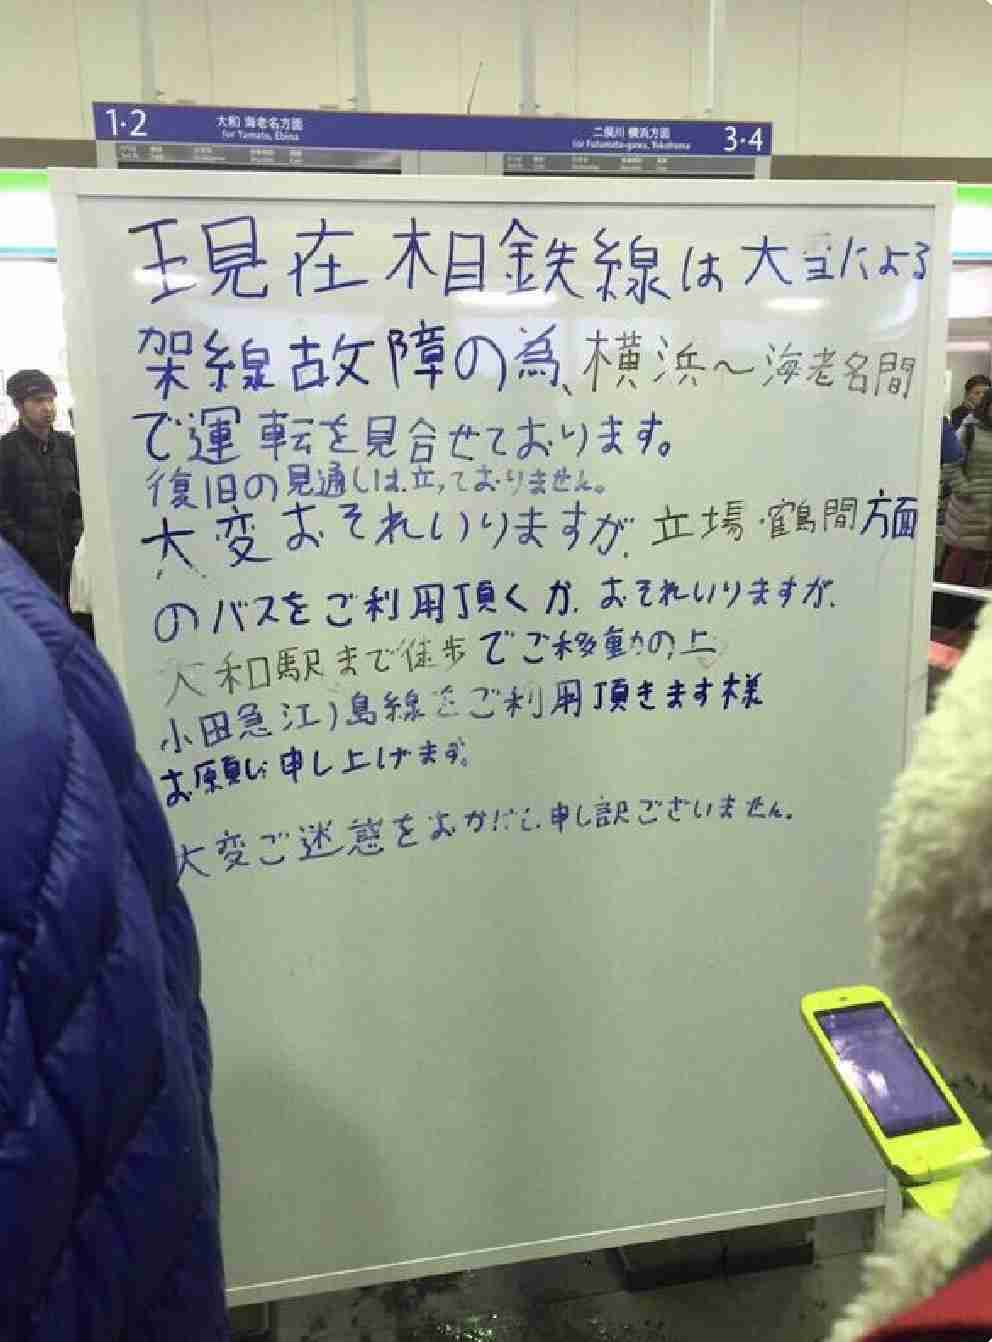 1・2
大和 海老名方面
for Yamato, Ebina
二俣川 横浜方面
for Futamata-gawa, Yokohama
3・4
現在相鉄線は大雪による
架線故障の為、横浜〜海老名間
で運転を見合せております。
復旧の見通しは立っておりません。
大変おそれいりますが、立場・鶴間方面
のバスをご利用頂くか、おそれいりますが、
大和駅まで徒歩でご移動の上
小田急江ノ島線をご利用頂きます様
お願い申し上げます。
大変ご迷惑をおかけし申し訳ございません。